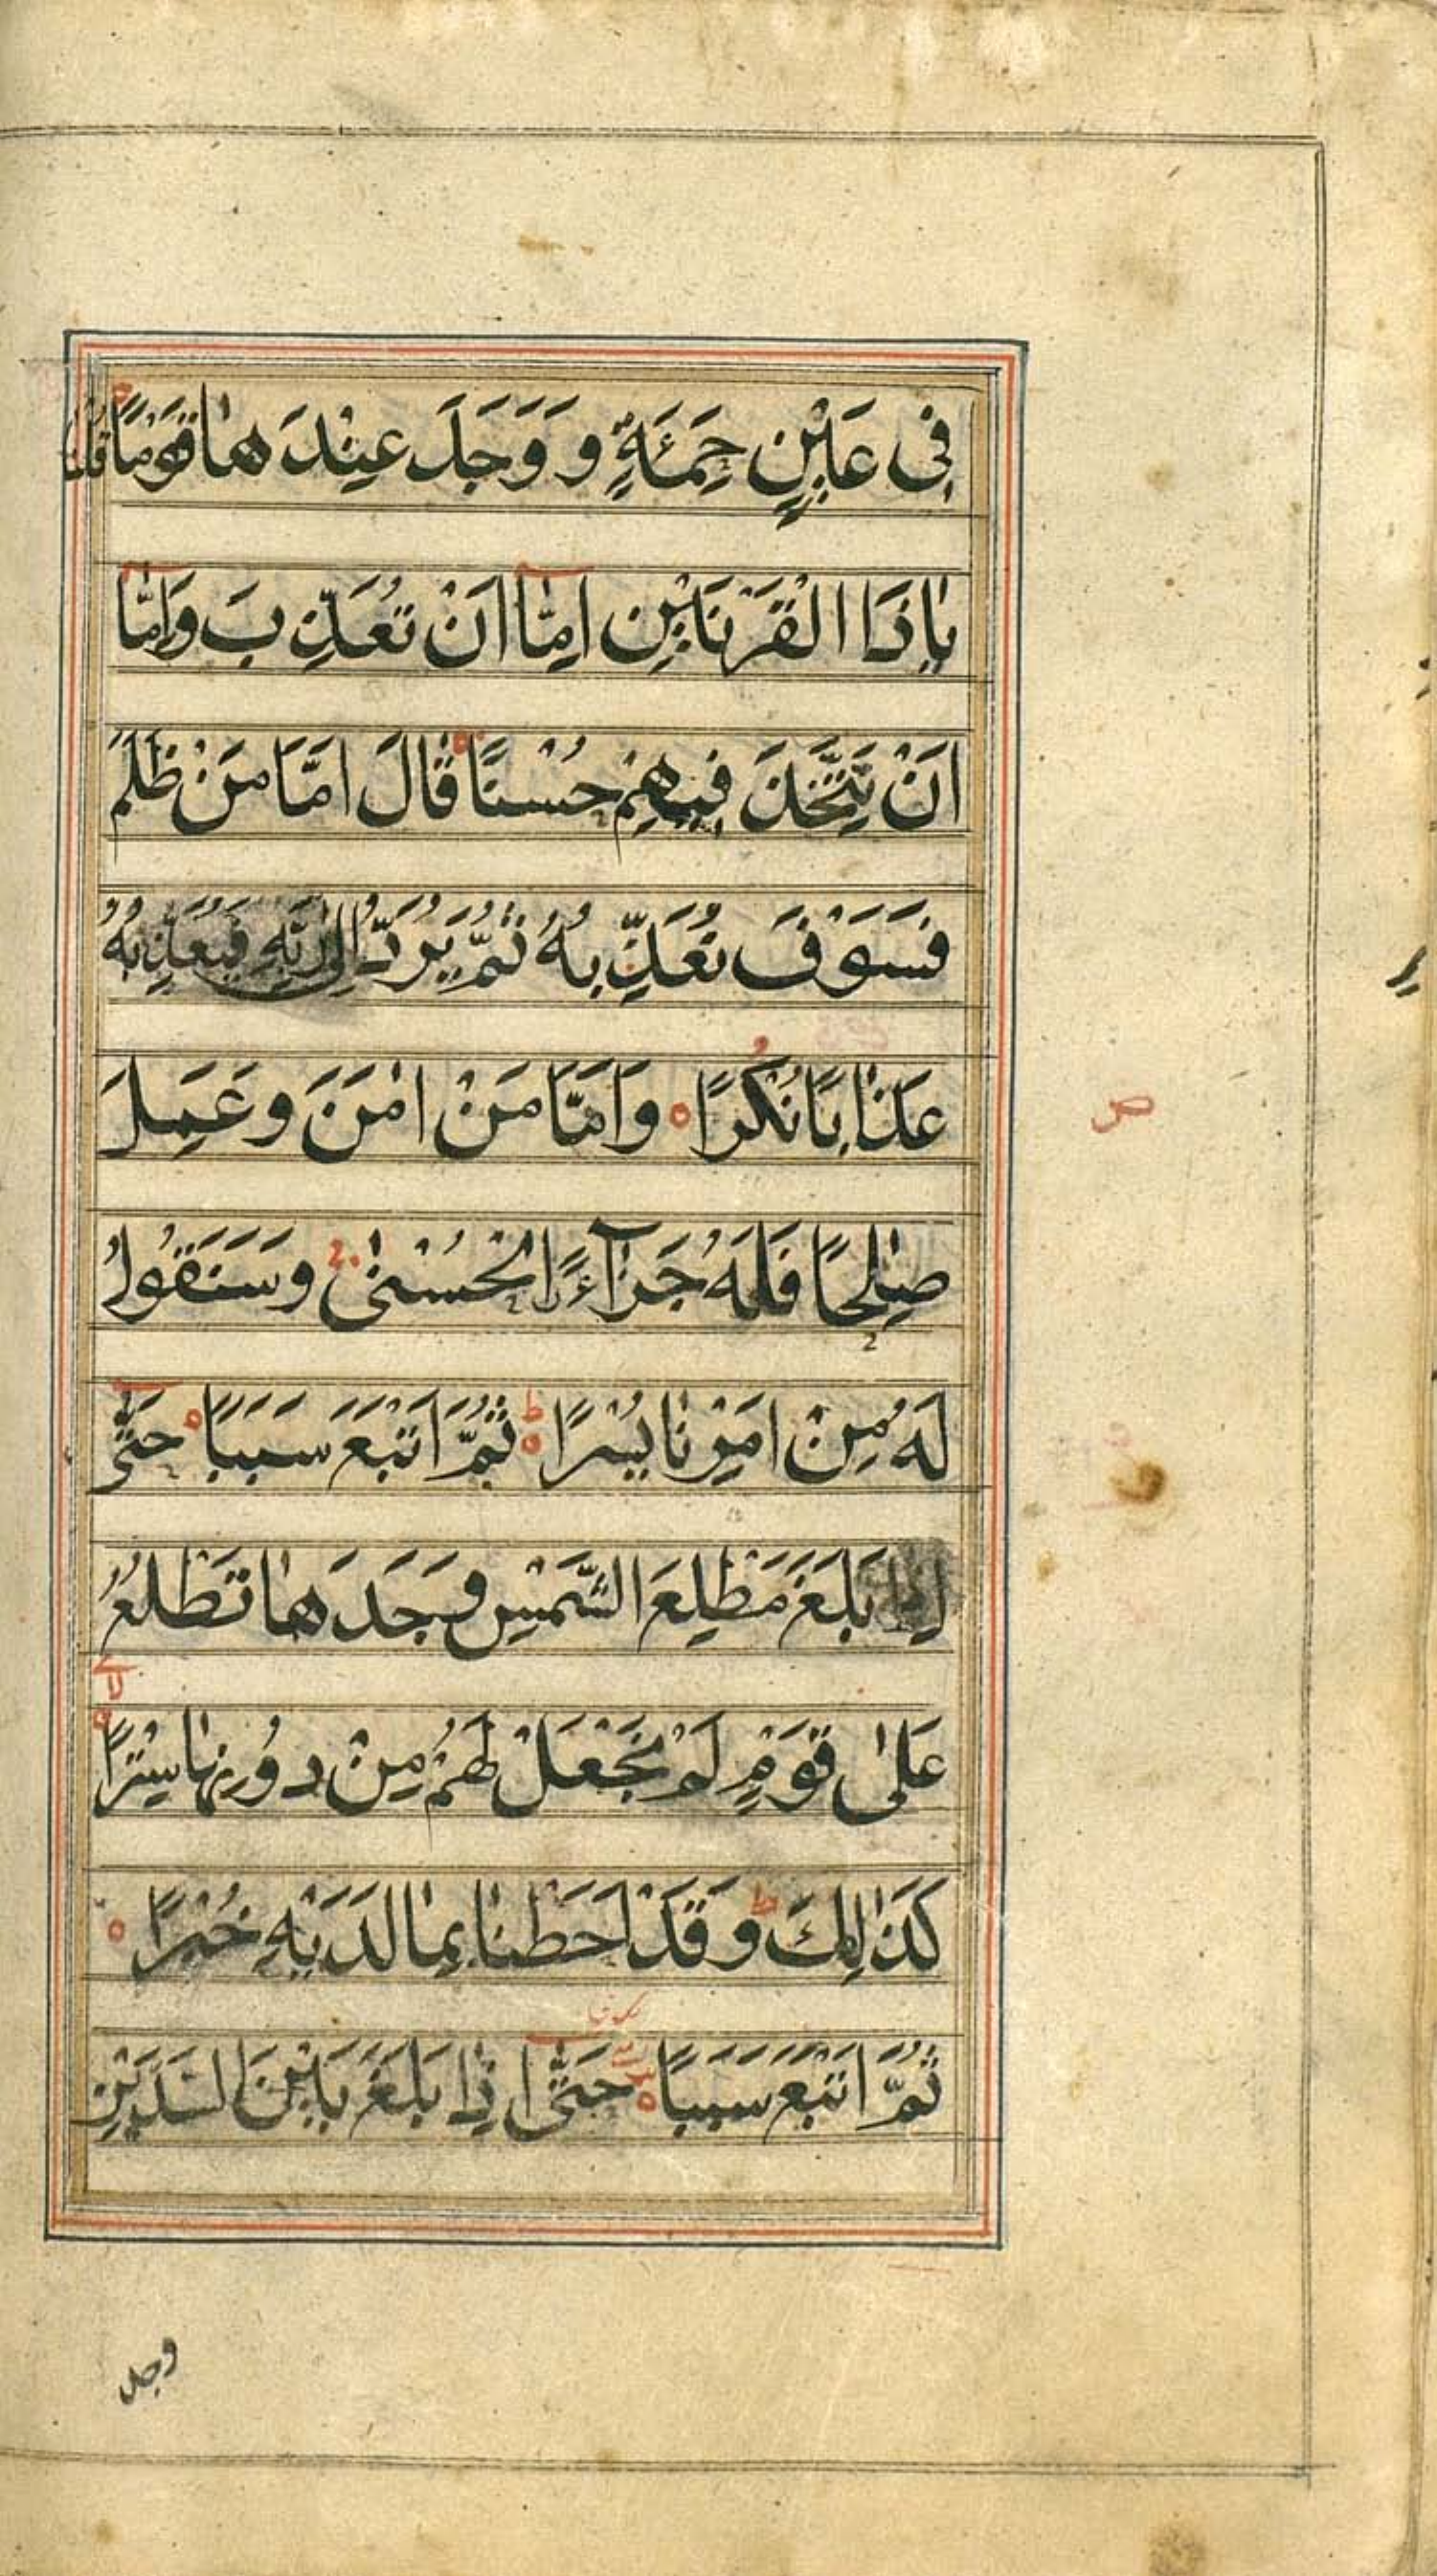 فِی عَیْنٍ حَمِئَةٍ وَ وَجَدَ عِنْدَهَا قَوْمًا قُلْنَا
یٰذَا الْقَرْنَیْنِ اِمَّا اَنْ تُعَذِّبَ وَاِمَّا
اَنْ تَتَّخِذَ فِیهِمْ حُسْنًا قَالَ اَمَّا مَنْ ظَلَمَ
فَسَوْفَ نُعَذِّبُهُ ثُمَّ یُرَدُّ اِلٰی رَبِّهِ فَیُعَذِّبُهُ
عَذَابًا نُكْرًا ٥ وَاَمَّا مَنْ اٰمَنَ وَعَمِلَ
ص
صٰلِحًا فَلَهُ جَزَآءًا الْحُسْنٰی وَسَنَقُولُ
لَهُ مِنْ اَمْرِنَا یُسْرًا ط ٥ ثُمَّ اَتْبَعَ سَبَبًا ٥ حَتّٰٓی
اِذَا بَلَغَ مَطْلِعَ الشَّمْسِ وَجَدَهَا تَطْلُعُ
عَلٰی قَوْمٍ لَمْ نَجْعَلْ لَهُمْ مِنْ دُونِهَا سِتْرًا ٥ لا
كَذٰلِكَ ط وَقَدْ اَحَطْنَا بِمَا لَدَیْهِ خُبْرًا ٥
ثُمَّ اَتْبَعَ سَبَبًا ٥ حَتّٰٓی اِذَا بَلَغَ بَیْنَ السَّدَّیْنِ
وجد